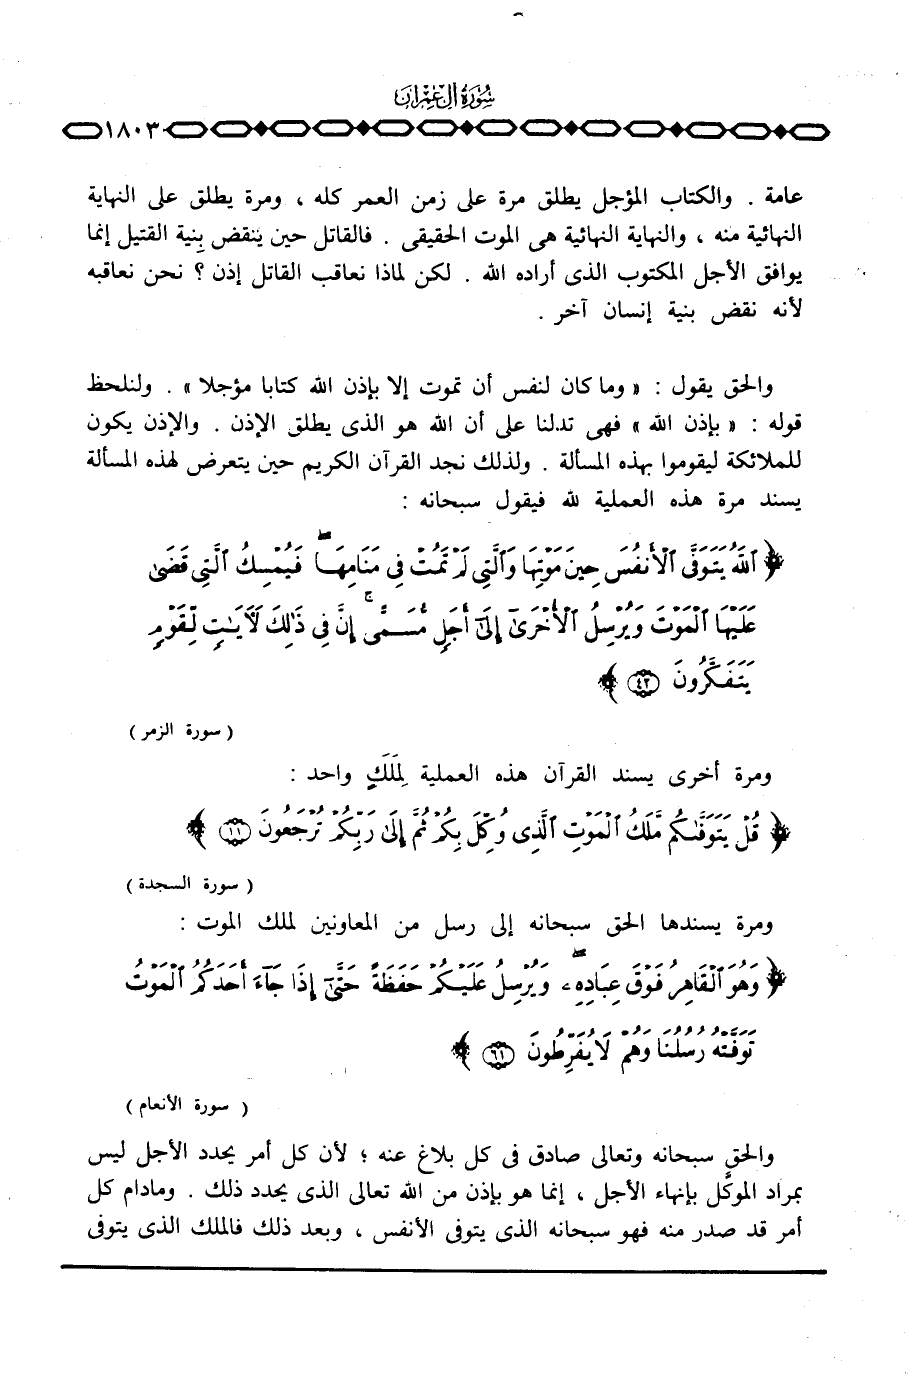 سُورَةُ آلِ عِمْرَان
١٨٠٣
عامة . والكتاب المؤجل يطلق مرة على زمن العمر كله ، ومرة يطلق على النهاية
النهائية منه ، والنهاية النهائية هى الموت الحقيقى . فالقاتل حين ينقض بِنية القتيل إنما
يوافق الأجل المكتوب الذى أراده الله . لكن لماذا نعاقب القاتل إذن ؟ نحن نعاقبه
لأنه نقض بنية إنسان آخر .
والحق يقول : « وما كان لنفس أن تموت إلا بإذن الله كتابا مؤجلا » . ولنلحظ
قوله : « بإذن الله » فهى تدلنا على أن الله هو الذى يطلق الإذن . والإذن يكون
للملائكة ليقوموا بهذه المسألة . ولذلك نجد القرآن الكريم حين يتعرض لهذه المسألة
يسند مرة هذه العملية لله فيقول سبحانه :
﴿ ٱللَّهُ يَتَوَفَّى ٱلْأَنفُسَ حِينَ مَوْتِهَا وَٱلَّتِى لَمْ تَمُتْ فِى مَنَامِهَا ۖ فَيُمْسِكُ ٱلَّتِى قَضَىٰ
عَلَيْهَا ٱلْمَوْتَ وَيُرْسِلُ ٱلْأُخْرَىٰٓ إِلَىٰٓ أَجَلٍ مُّسَمًّى ۚ إِنَّ فِى ذَٰلِكَ لَآيَٰتٍ لِّقَوْمٍ
يَتَفَكَّرُونَ ٤٢ ﴾
( سورة الزمر )
ومرة أخرى يسند القرآن هذه العملية لِمَلَكٍ واحد :
﴿ قُلْ يَتَوَفَّىٰكُم مَّلَكُ ٱلْمَوْتِ ٱلَّذِى وُكِّلَ بِكُمْ ثُمَّ إِلَىٰ رَبِّكُمْ تُرْجَعُونَ ١١ ﴾
( سورة السجدة )
ومرة يسندها الحق سبحانه إلى رسل من المعاونين لملك الموت :
﴿ وَهُوَ ٱلْقَاهِرُ فَوْقَ عِبَادِهِۦ ۖ وَيُرْسِلُ عَلَيْكُمْ حَفَظَةً حَتَّىٰٓ إِذَا جَآءَ أَحَدَكُمُ ٱلْمَوْتُ
تَوَفَّتْهُ رُسُلُنَا وَهُمْ لَا يُفَرِّطُونَ ٦١ ﴾
( سورة الأنعام )
والحق سبحانه وتعالى صادق فى كل بلاغ عنه ؛ لأن كل أمر يحدد الأجل ليس
بمراد الموكَّل بإنهاء الأجل ، إنما هو بإذن من الله تعالى الذى يحدد ذلك . ومادام كل
أمر قد صدر منه فهو سبحانه الذى يتوفى الأنفس ، وبعد ذلك فالملك الذى يتوفى